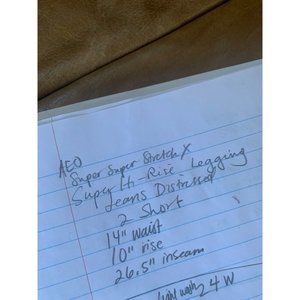 AEO
Super Super Stretch X
Super Hi-Rise Legging
Jeans Distressed
2 Short
14" waist
10" rise
26.5" inseam
light wash 24W